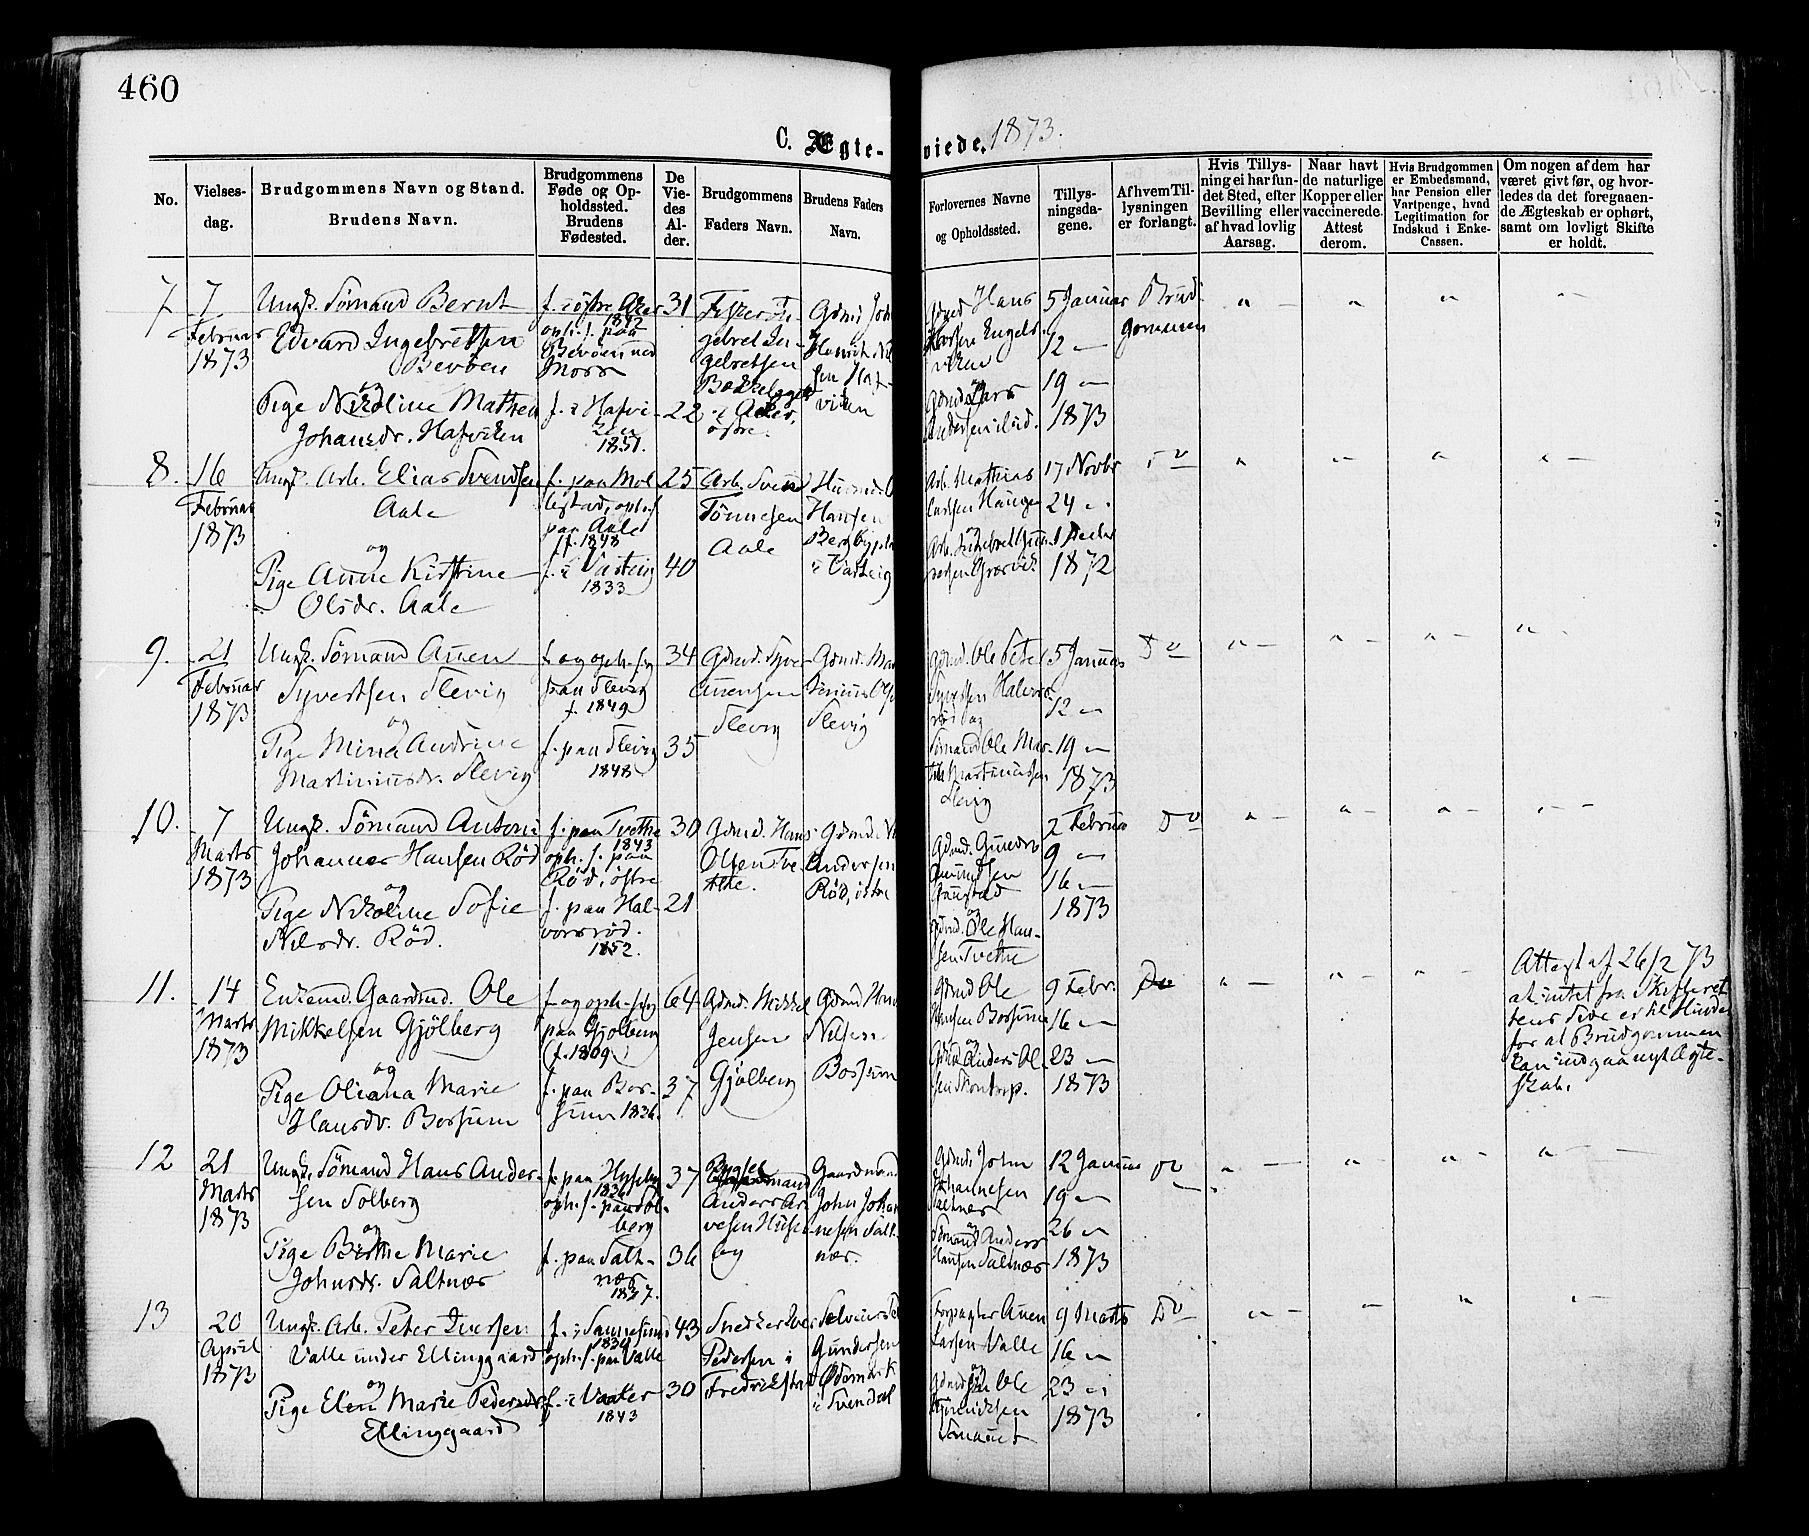 460
C. Ægte-viede. 1873.
No.
Vielses-
dag.
Brudgommens Navn og Stand.
Brudens Navn.
Brudgommens
Føde og Op-
holdssted.
Brudens
Fødested.
De
Vie-
des
Al-
der.
Brudgommens
Faders Navn.
Brudens Faders
Navn.
Forlovernes Navne
og Opholdssted.
Tillys-
ningsda-
gene.
Af hvem Til-
lysningen
er forlangt.
Hvis Tillys-
ning ei har fun-
det Sted, efter
Bevilling eller
af hvad lovlig
Aarsag.
Naar havt
de naturlige
Kopper eller
vaccinerede.
Attest
derom.
Hvis Brudgommen
er Embedsmand,
har Pension eller
Vartpenge, hvad
Legitimation for
Indskud i Enke-
Cassen.
Om nogen af dem har
været givt før, og hvor-
ledes da det foregaaen-
de Ægteskab er ophørt,
samt om lovligt Skifte
er holdt.
7.
7
Februar
1873
Ungk. Sømand Bernt
Edvard Ingebretsen
Bevøen
og
Pige Nikoline Mathea
Johansdr. Hafviken
f. i østre Aker
1842
oph. s. paa
Bevøen ved
Moss
f. i Hafvi-
ken
1851.
31
22
Fisker In-
gebret In-
gebretsen
Bækkelaget
i Aker,
østre.
Gdmd Joh
Henrik Niel
sen Haf-
viken
Gdmd Hans
Engels-
viken
og
Gdmd Lars
Andersen ibid.
5 Januar
12 "
19 "
1873
Brud-
gommen
8.
16
Februar
1873
Ungk. Arb. Elias Svendsen
Aale
og
Pige Anne Kirstine
Olsdr. Aale
f. paa Mol
lestad, oph. s.
paa Aale
f. 1848
f. i Varteig
1833
25
40
Arb. Svend
Tønnesen
Aale
Husmd. O
Hansen
Bergbypl.
i Varteig
Arb. Mathias
Carlsen Haugen
og
17 Novbr
24 "
1 Decbr
1872
Do
9.
21
Februar
1873
Ungk. Sømand Anen
Syvertsen Slevig
og
Pige Mina Andrine
Martiniusdr. Slevig
f. og oph. sig
paa Slevig
f. 1849
f. paa Slevig
1848
34
35
Gdmd. Syver
Anensen
Slevig
Gdmd. Mar
tinius Ols
Slevig
Gdmd. Ole Peter
Syvertsen Halvors-
rød og
Sømand Ole Mar-
Martiniussen
Slevig
5 Januar
12 "
19 "
1873
Do
10.
7
Marts
1873
Ungk. Sømand Anton
Johannes Hansen Rød
og
Pige Nikoline Sofie
Nilsdr. Rød.
f. paa Tvethe
1843
oph. s. paa
Rød, østre
f. paa Hal-
vorsrød.
1852.
30
21
Gdmd. Hans
Olsen Tve-
the.
Gdmd. Ni
Andersen
Rød, østre
Gdmd. Gunder
Gaustad
og
Gdmd. Ole Han-
sen Tvethe
2 Februar
9 "
16 "
1873
Do
11.
14
Marts
1873
Enkemd. Gaardmd. Ole
Mikkelsen Gjølberg
og
Pige Oliana Marie
Hansdr. Borsum
f. og oph. sig
paa Gjølberg
(f. 1809)
f. paa Bor-
sum 1836.
64
37
Gdmd. Mikkel
Jensen
Gjølberg
Gdmd Hans
Nilsen
Borsum
Gdmd Ole
Hansen Borsum
og
Gdmd Anders Ol-
sen
9 Febr.
16 "
23 "
1873
Do
Attest af 26/2 73
at intet fra Skifteret
tens Side er til Hinder
for at Brudgommen
kan indgaa nyt Ægte-
skab.
12
21
Marts
1873
Ungk. Sømand Hans Ander-
sen Solberg
og
Pige Berthe Marie
Johnsdr. Saltnær
f. paa Huseby
1836
oph. s. paa Sol-
berg
f. paa Salt-
nær
1837.
37
36
Anders Ar-
vesen Huse-
by
Gaardmand
John Johan
nesen Salt-
nær.
Gdmd. John
Johannesen
Saltnær
og
Sømand Anders
Hansen Saltnær
12 Januar
19 "
26 "
1873
Do
13
20
April
1873
Ungk. Arb. Peter Iversen
Valle under Ellinggaard
og
Pige Elen Marie Pedersdr.
Ellinggaard
f. i Sannesund
1830
oph. s. paa Valle
f. i Vaaler
1843
43
30
Snedker Iver
Pedersen i
Fredrikstad
Selveier Pe
Gundersen
Ødemark
i Svendal
Forpagter Anen
Larsen Valle
og
Gdmd Ole
9 Marts
16 "
23 "
1873
Do